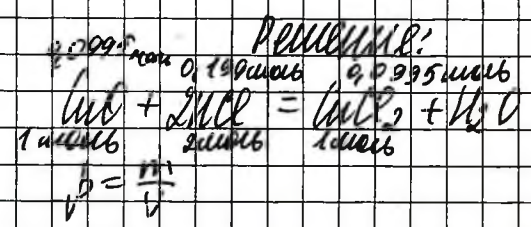 Решение:
0,0995 моль 0,199 моль 0,0995 моль
CuO + 2HCl = CuCl₂ + H₂O
1 моль 2 моль 1 моль
p = m/V